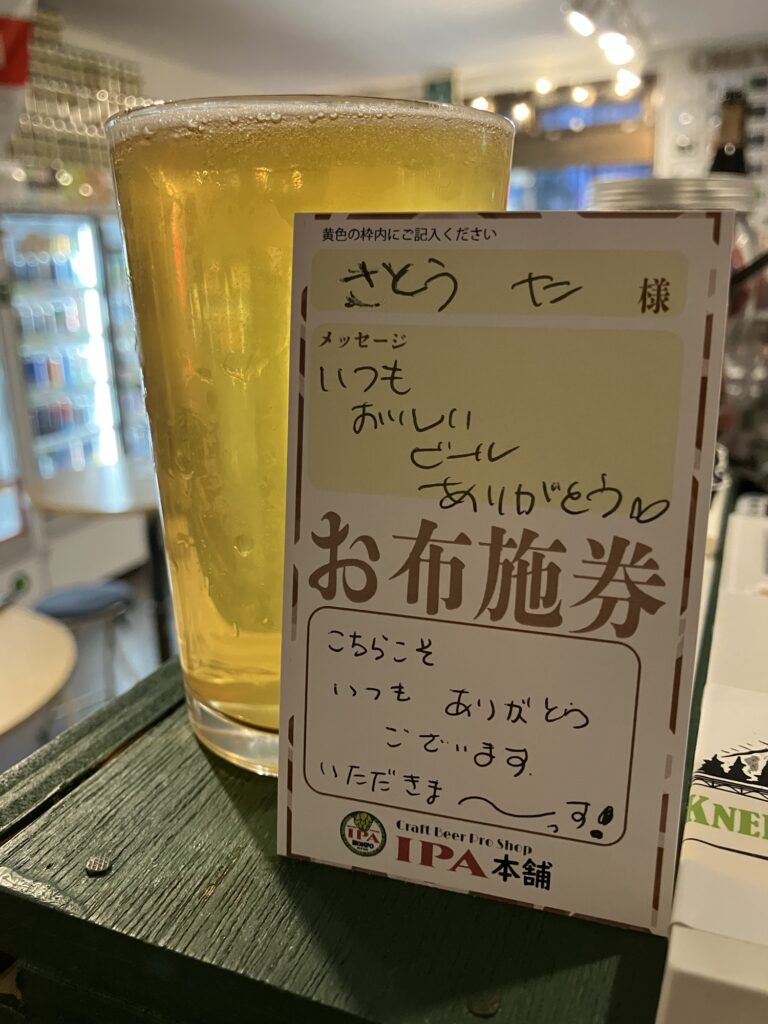 黄色の枠内にご記入ください
さとう ヤン 様
メッセージ
いつも
おいしい
ビール
ありがとう
お布施券
こちらこそ
いつも ありがとう
ございます
いただきま〜〜っす!
IPA
Craft Beer Pro Shop
IPA本舗